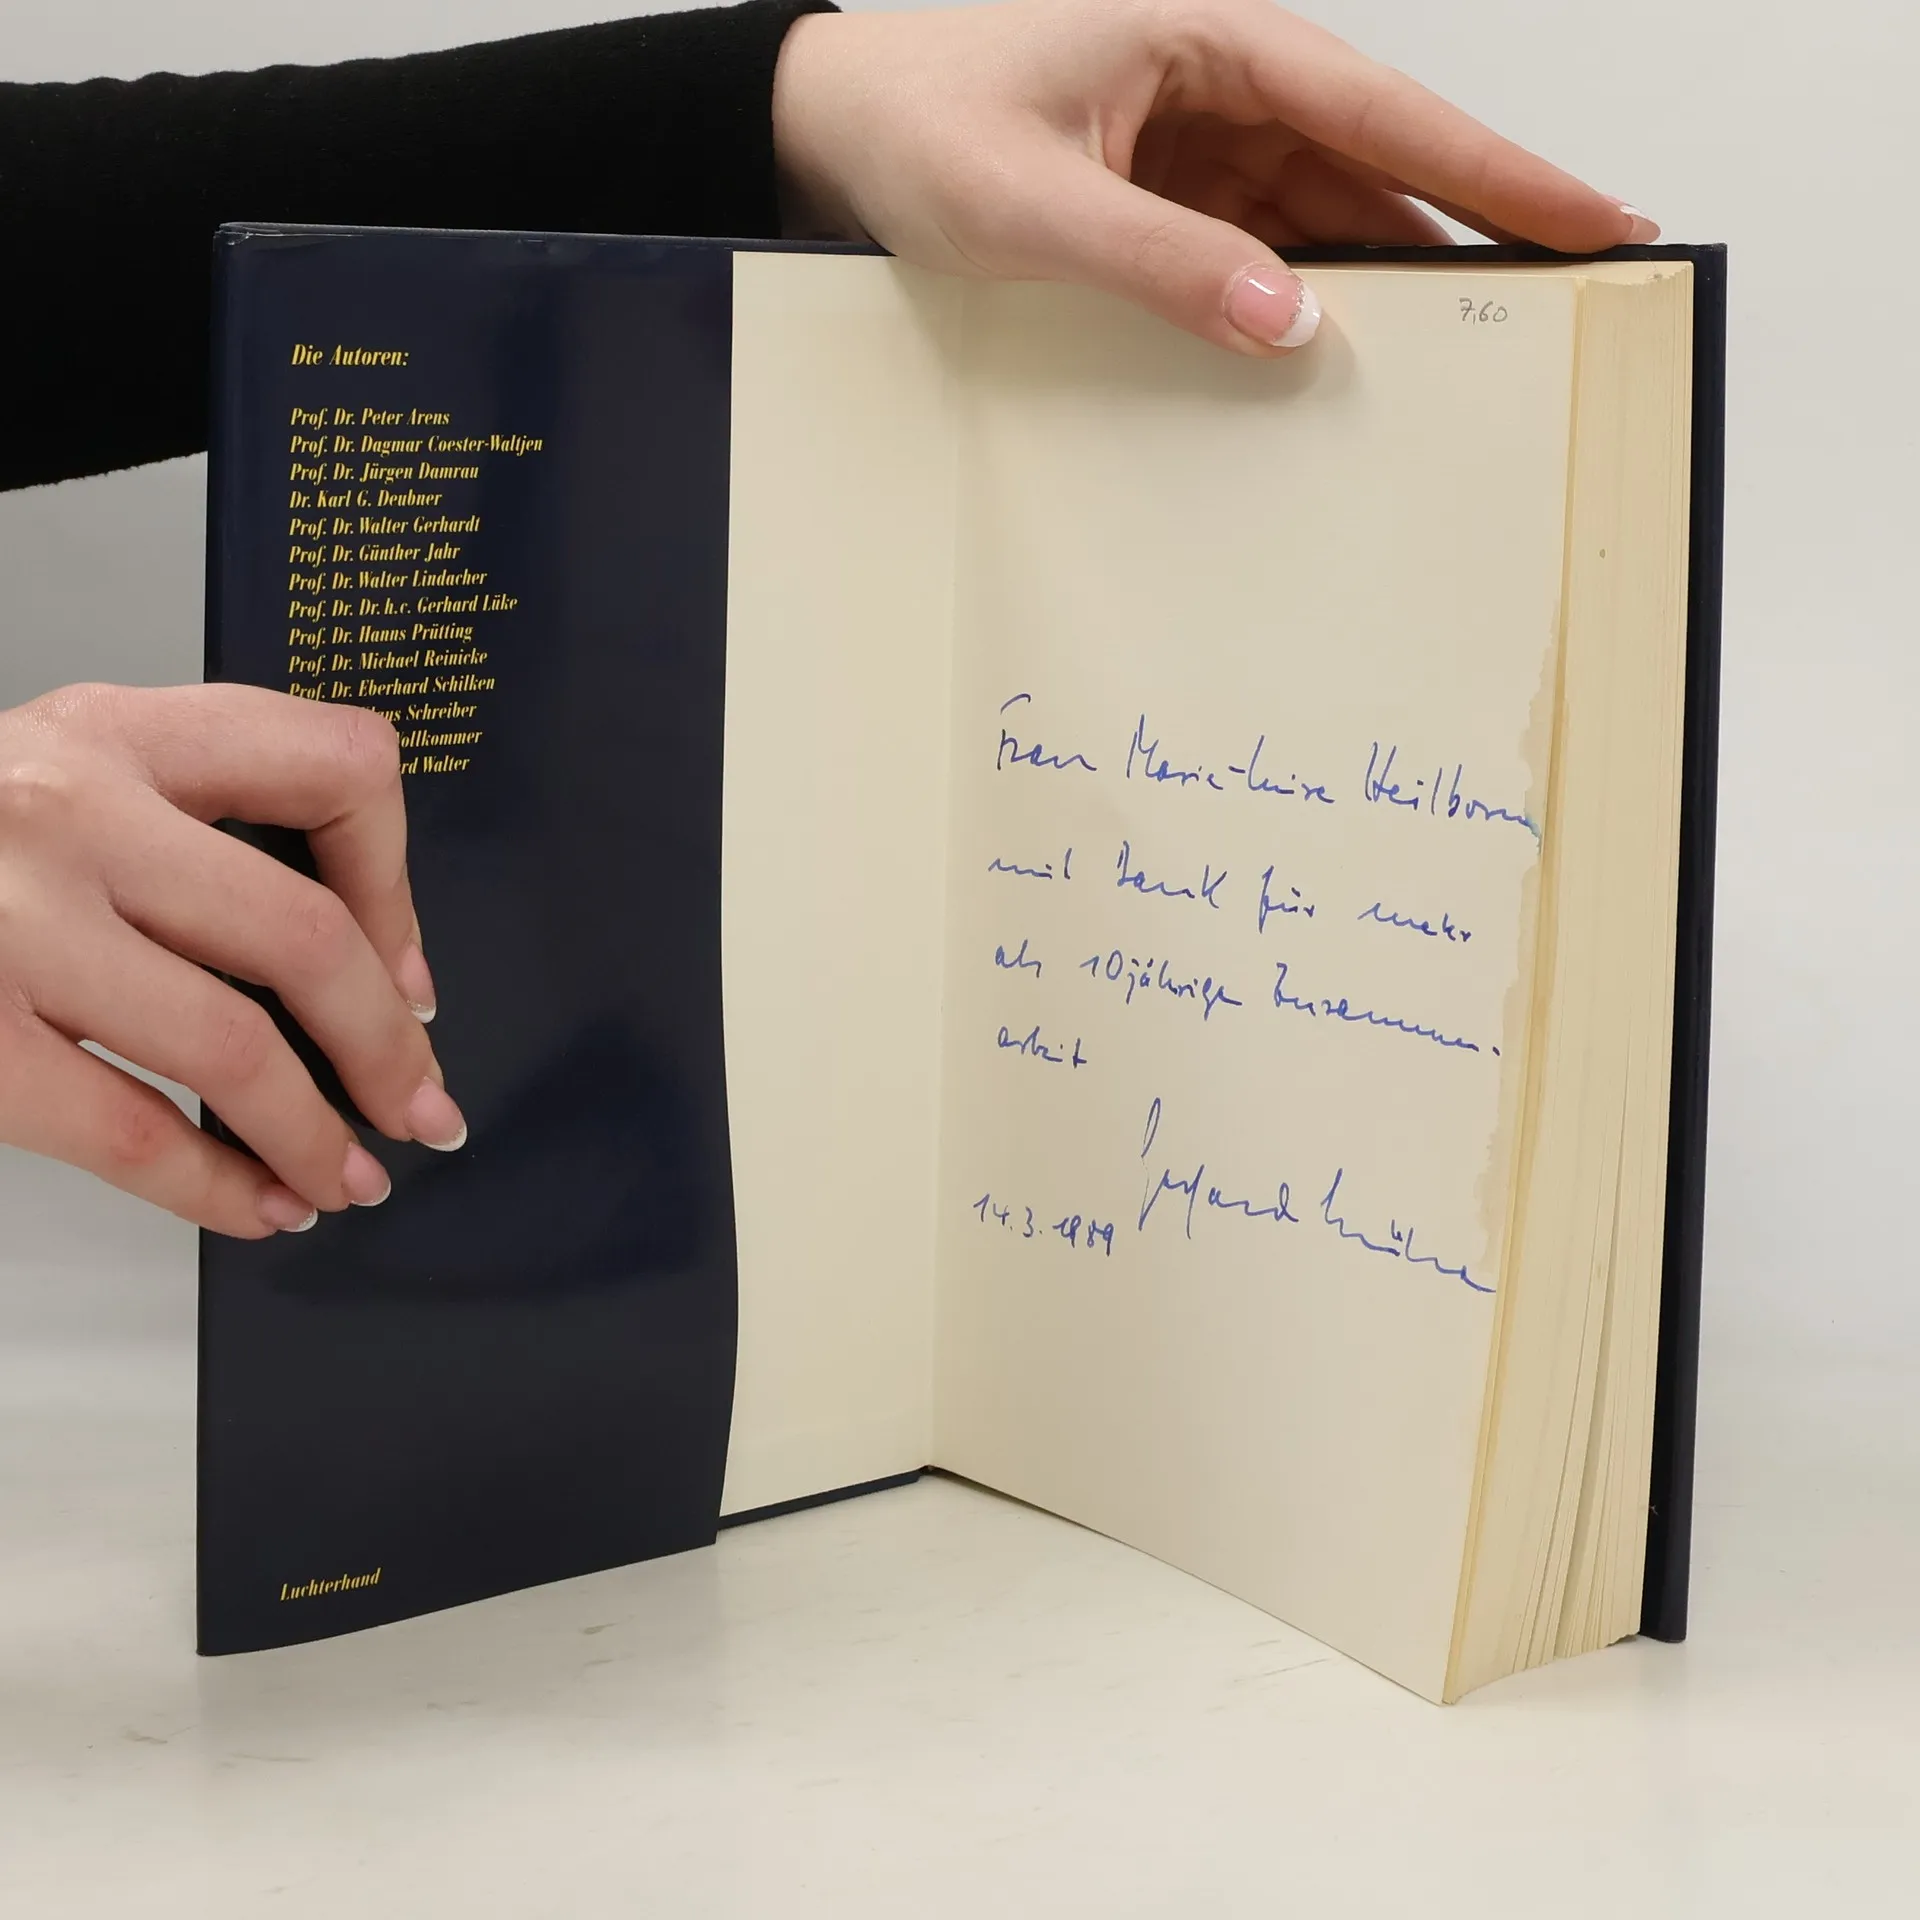 Die Autoren:
Prof. Dr. Peter Arens
Prof. Dr. Dagmar Coester-Waltjen
Prof. Dr. Jürgen Damrau
Dr. Karl G. Deubner
Prof. Dr. Walter Gerhardt
Prof. Dr. Günther Jahr
Prof. Dr. Walter Lindacher
Prof. Dr. Dr. h.c. Gerhard Lüke
Prof. Dr. Hanns Prütting
Prof. Dr. Michael Reinicke
Prof. Dr. Eberhard Schilken
Schreiber
Vollkommer
Walter
Luchterhand
7,60
Frau Marie-Luise Heilborn
mit Dank für mehr
als 10jährige Zusammen-
arbeit
Gerhard
14.3.1989